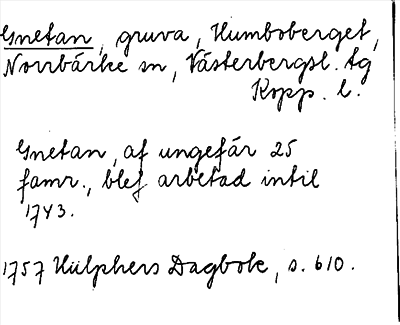 Gnetan, gruva, Humboberget,
Norrbärke sn, Västerbergsl. tg
Kopp. l.
Gnetan, af ungefär 25
famr., blef arbetad intil
1743.
1757 Hülphers Dagbok, s. 610.